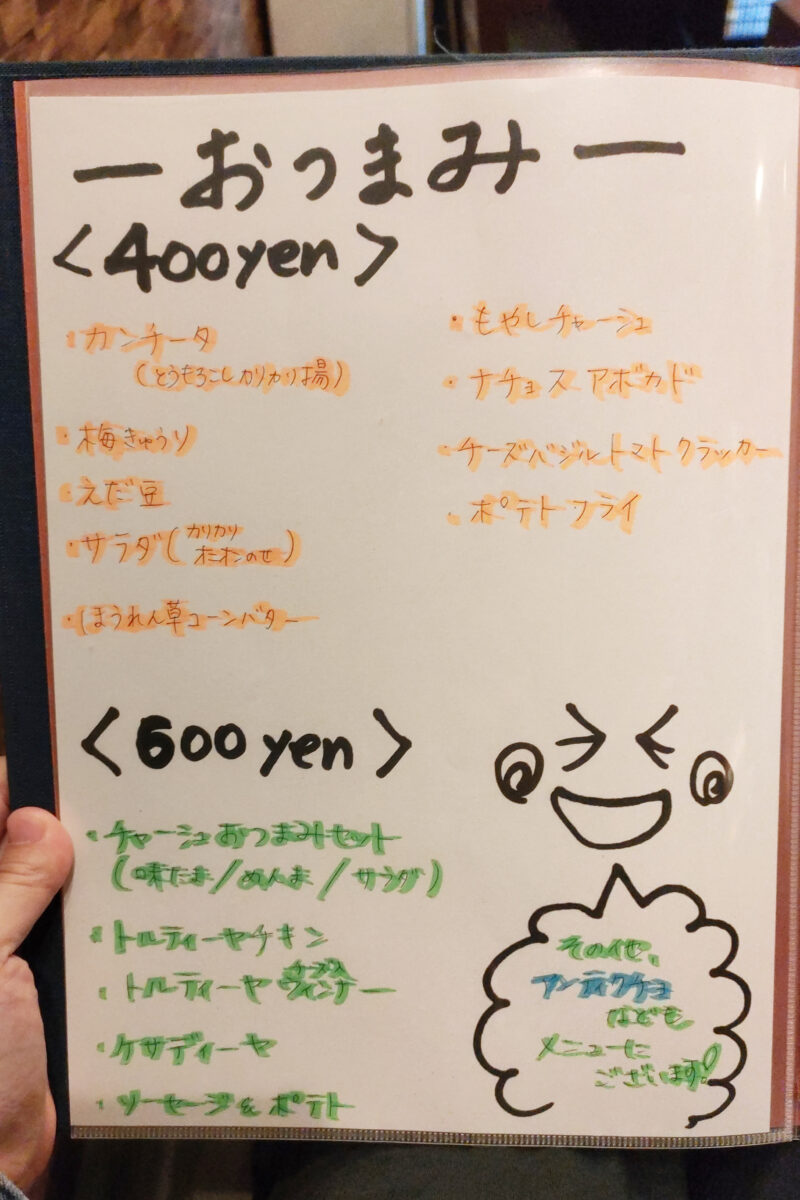 ーおつまみー
<400yen>
・カンチータ
(とうもろこしカリカリ揚)
・梅きゅうり
・えだ豆
・サラダ(カリカリオニオンのせ)
・ほうれん草コーンバター
・もやしチャーシュ
・ナチョスアボカド
・チーズバジルトマトクラッカー
・ポテトフライ
<600yen>
・チャーシュおつまみセット
(味たま/めんま/サラダ)
・トルティーヤチキン
・トルティーヤチーズウィンナー
・ケサディーヤ
・ソーセージ&ポテト
その他、
アンティクチョ
なども
メニューに
ございます!